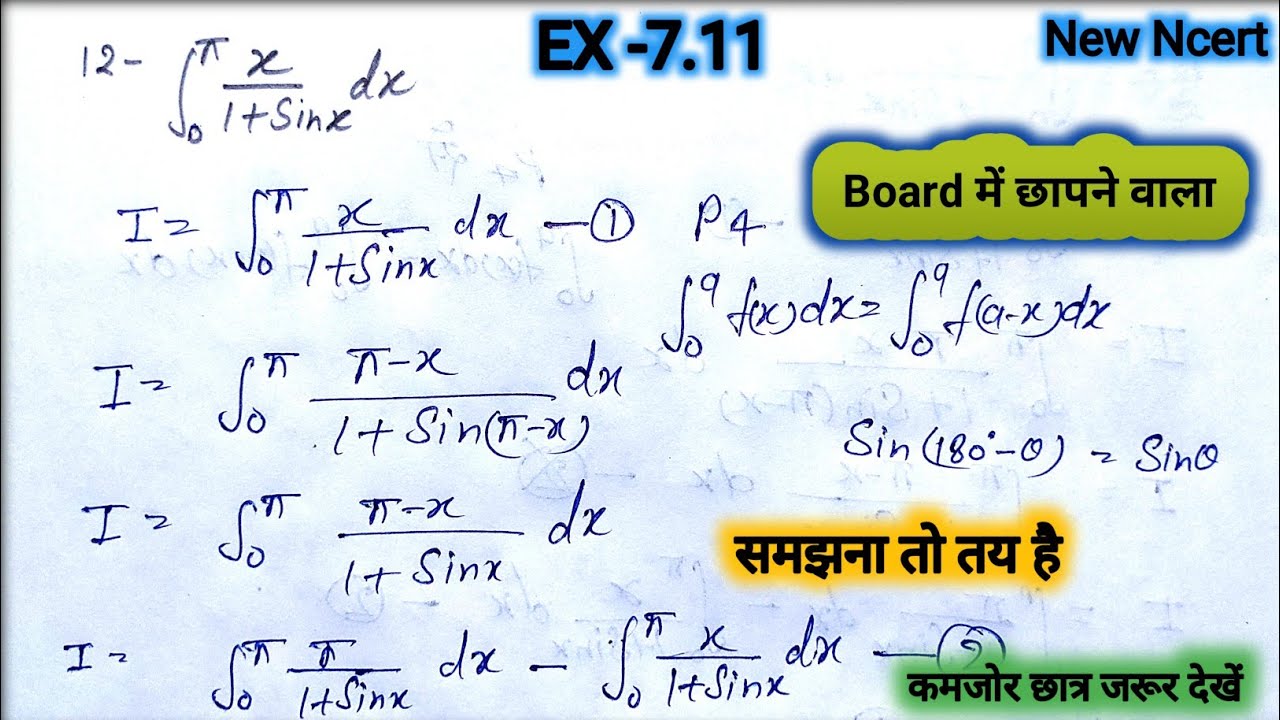 EX -7.11
New Ncert
12- ∫₀^π x/(1+Sinx) dx
Board में छापने वाला
I = ∫₀^π x/(1+Sinx) dx —① P4
∫₀^a f(x)dx = ∫₀^a f(a-x)dx
I = ∫₀^π (π-x)/(1+Sin(π-x)) dx
Sin(180°-θ) = Sinθ
I = ∫₀^π (π-x)/(1+Sinx) dx
समझना तो तय है
I = ∫₀^π π/(1+Sinx) dx - ∫₀^π x/(1+Sinx) dx —②
कमजोर छात्र जरूर देखें